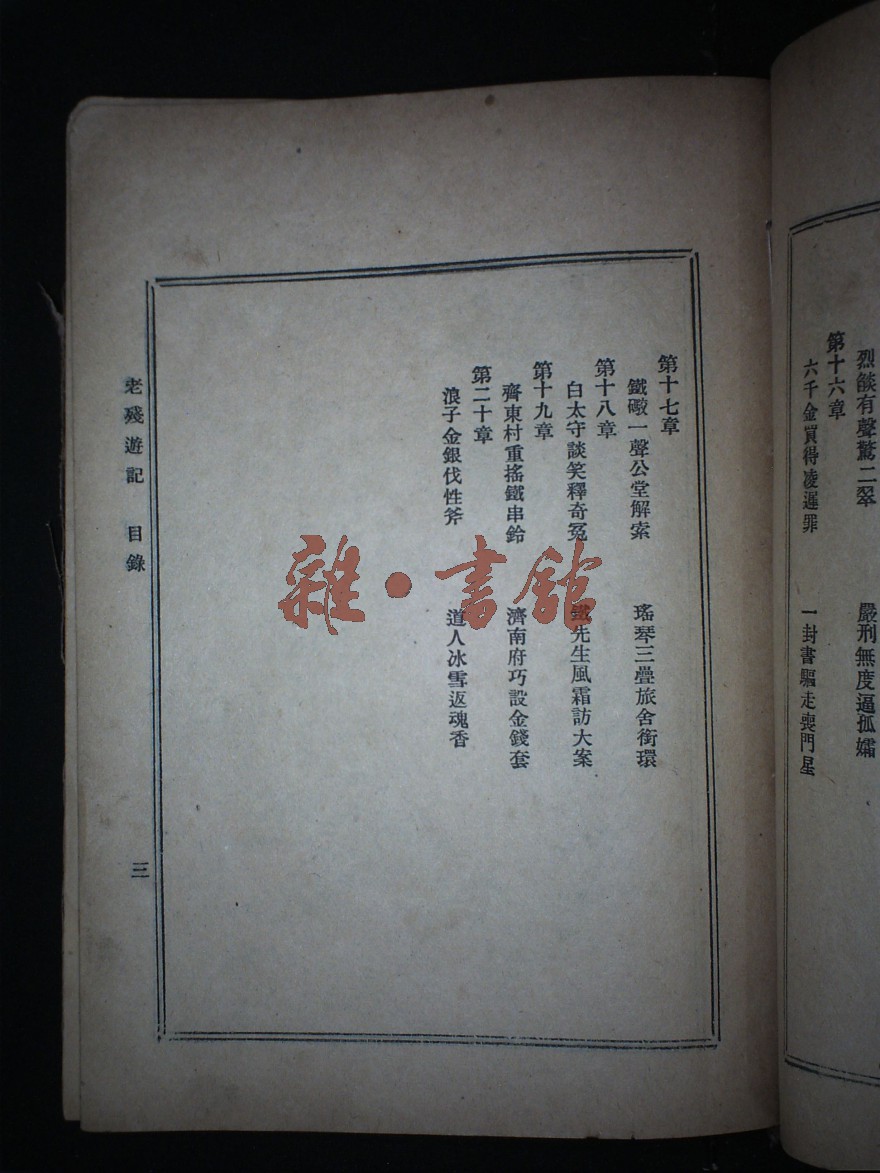 烈燄有聲驚二翠　嚴刑無度逼孤孀
第十六章
六千金買得凌遲罪　一封書驅走喪門星
第十七章
鐵礮一聲公堂解索　瑤琴三疊旅舍銜環
第十八章
白太守談笑釋奇冤　鐵先生風霜訪大案
第十九章
齊東村重搖鐵串鈴　濟南府巧設金錢套
第二十章
浪子金銀伐性斧　道人冰雪返魂香
老殘遊記　目錄
三
雜·書館